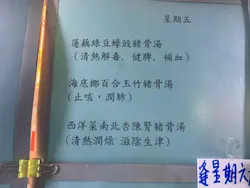 星期五
蓮藕綠豆蠔豉豬骨湯
(清熱解毒, 健脾, 補血)
海底椰百合玉竹豬骨湯
(止咳, 潤肺)
西洋菜南北杏陳腎豬骨湯
(清熱潤燥 滋陰生津)
逢星期六